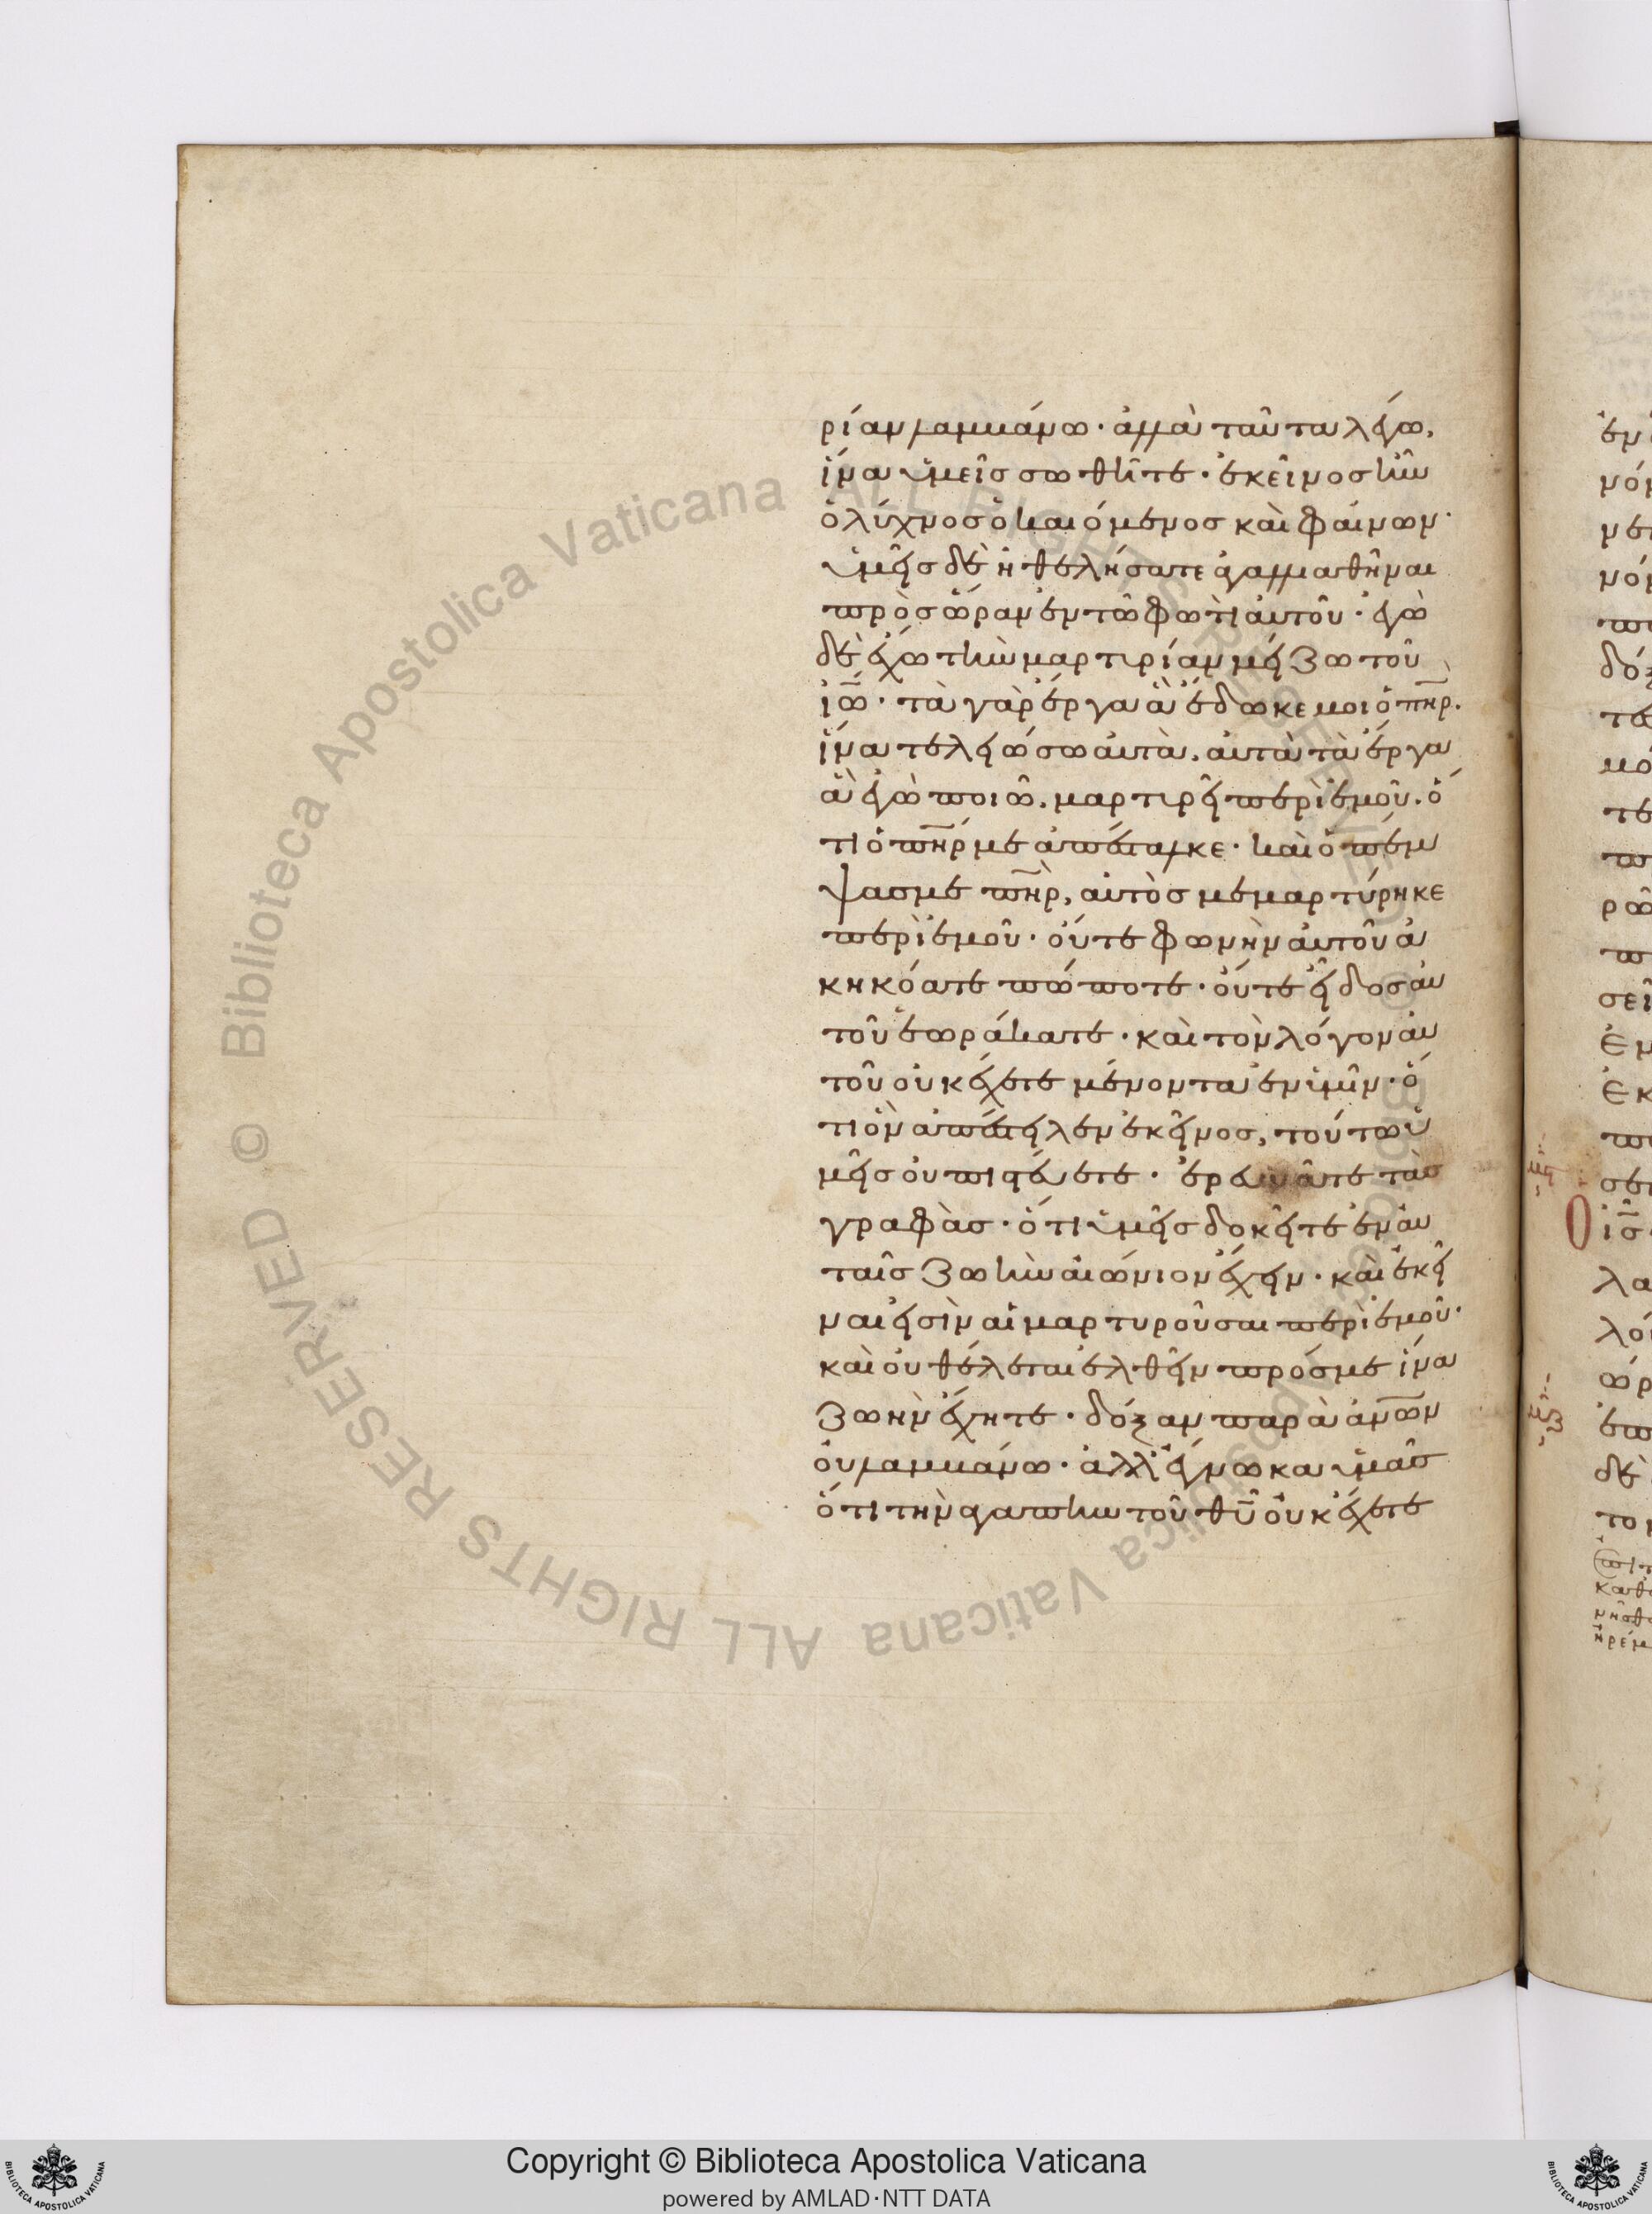 ρίαν λαμβάνω· ἀλλὰ ταῦτα λέγω,
ἵνα ὑμεῖς σωθῆτε· ἐκεῖνος ἦν
ὁ λύχνος ὁ καιόμενος καὶ φαίνων·
ὑμεῖς δὲ ἠθελήσατε ἀγαλλιαθῆναι
πρὸς ὥραν ἐν τῶ φωτὶ αὐτοῦ· ἐγὼ
δὲ ἔχω τὴν μαρτυρίαν μείζω τοῦ
ἰω̅· τὰ γὰρ ἔργα ἃ ἔδωκε μοι ὁ πη̅ρ.
ἵνα τελειώσω αὐτὰ, αὐτὰ τὰ ἔργα
ἃ ἐγὼ ποιῶ, μαρτυρεῖ περὶ ἐμοῦ. ὅ
τι ὁ πη̅ρ με ἀπέσταλκε· καὶ ὁ πέμ
ψας με πη̅ρ, αὐτὸς μεμαρτύρηκε
περὶ ἐμοῦ· οὔτε φωνὴν αὐτοῦ ἀ
κηκόατε πώποτε· οὔτε εἶδος αὐ
τοῦ ἑωράκατε· καὶ τὸν λόγον αὐ
τοῦ οὐκ ἔχετε μένοντα ἐν ὑμῖν· ὅ
τι ὃν ἀπέστειλεν ἐκεῖνος, τούτω ὑ
μεῖς οὐ πιστεύετε· ἐρευνᾶτε τὰς
γραφὰς· ὅτι ὑμεῖς δοκεῖτε ἐν αὐ
ταῖς ζωὴν αἰώνιον ἔχειν· καὶ ἐκεῖ
ναι εἰσὶν αἱ μαρτυροῦσαι περὶ ἐμοῦ·
καὶ οὐ θέλεται ἐλθεῖν πρός με ἵνα
ζωὴν ἔχητε· δόξαν παρὰ ἀν̅ων
οὐ λαμβάνω· ἀλλ' ἔγνωκα ὑμᾶς
ὅτι τὴν ἀγάπην τοῦ θυ̅ οὐκ ἔχετε
Biblioteca Apostolica Vaticana ALL RIGHTS RESERVED ©
Copyright © Biblioteca Apostolica Vaticana
powered by AMLAD·NTT DATA